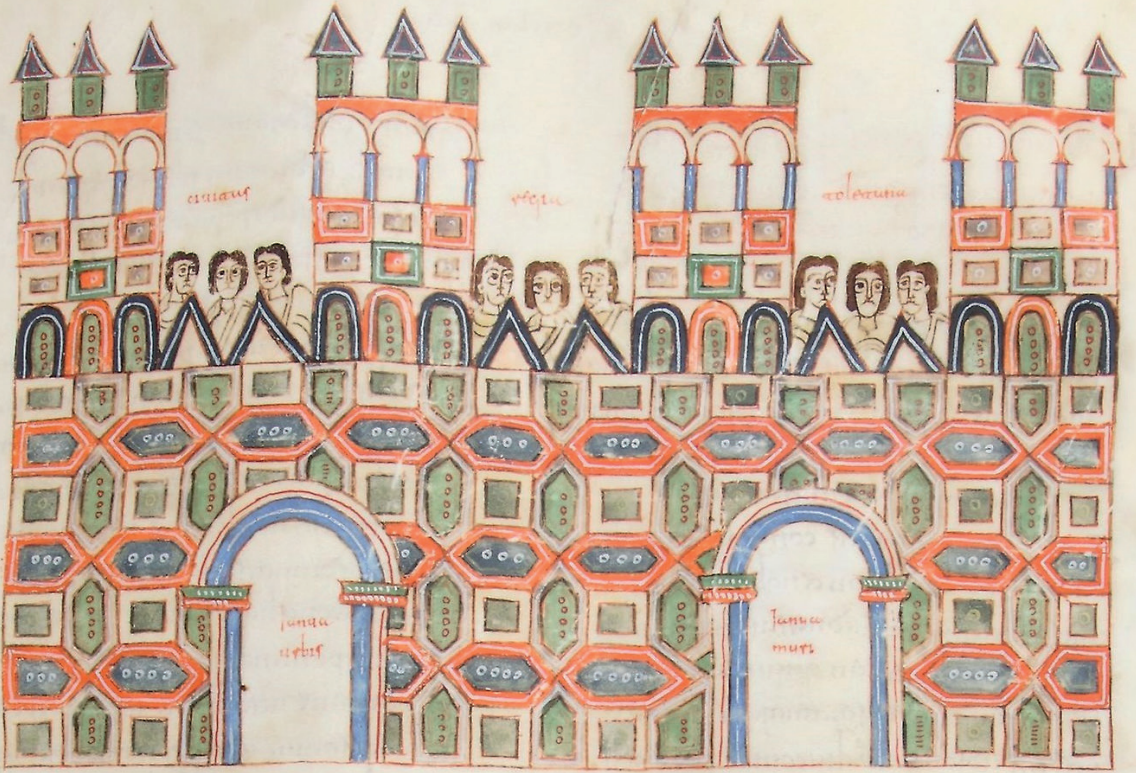 ciuitas
regia
toletana
Ianua
urbis
Ianua
muri